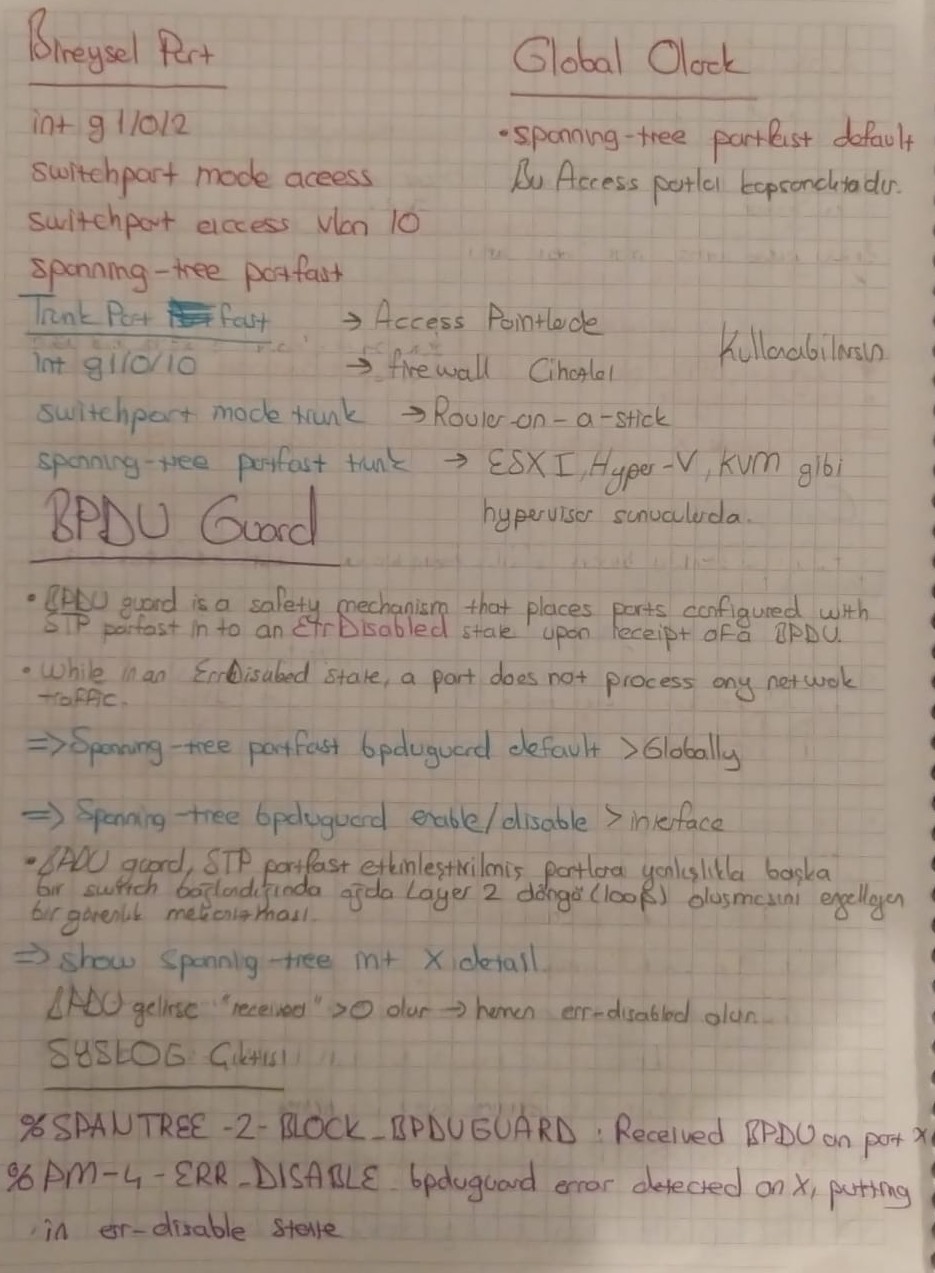 Bireysel Port
int g 1/0/2
switchport mode access
switchport access vlan 10
spanning-tree portfast
Global Olarak
•spanning-tree portfast default
Bu Access portları kapsamaktadır.
Trunk Port fast
int g1/0/10
switchport mode trunk
spanning-tree portfast trunk
→ Access Pointlerde
→ firewall Cihazları
→ Router-on-a-stick
→ ESXI, Hyper-V, KVM gibi
hypervisor sunucularda.
Kullanabilirsin
BPDU Guard
• BPDU guard is a safety mechanism that places ports configured with
STP portfast in to an ErrDisabled state upon receipt of a BPDU.
• While in an ErrDisabed state, a port does not process any network
traffic.
=> Spanning-tree portfast bpduguard default > Globally
=> Spanning-tree bpduguard enable/disable > interface
• BPDU guard, STP portfast etkinleştirilmiş portlara yanlışlıkla başka
bir switch bağlandığında ağda Layer 2 döngü (loop) oluşmasını engelleyen
bir güvenlik mekanizması.
=> show spanning-tree int X detail
BPDU gelirse "received" >0 olur → hemen err-disabled olur.
SYSLOG Çıktısı
%SPANTREE-2-BLOCK_BPDUGUARD: Received BPDU on port X
%PM-4-ERR_DISABLE bpduguard error detected on X, putting
in err-disable state